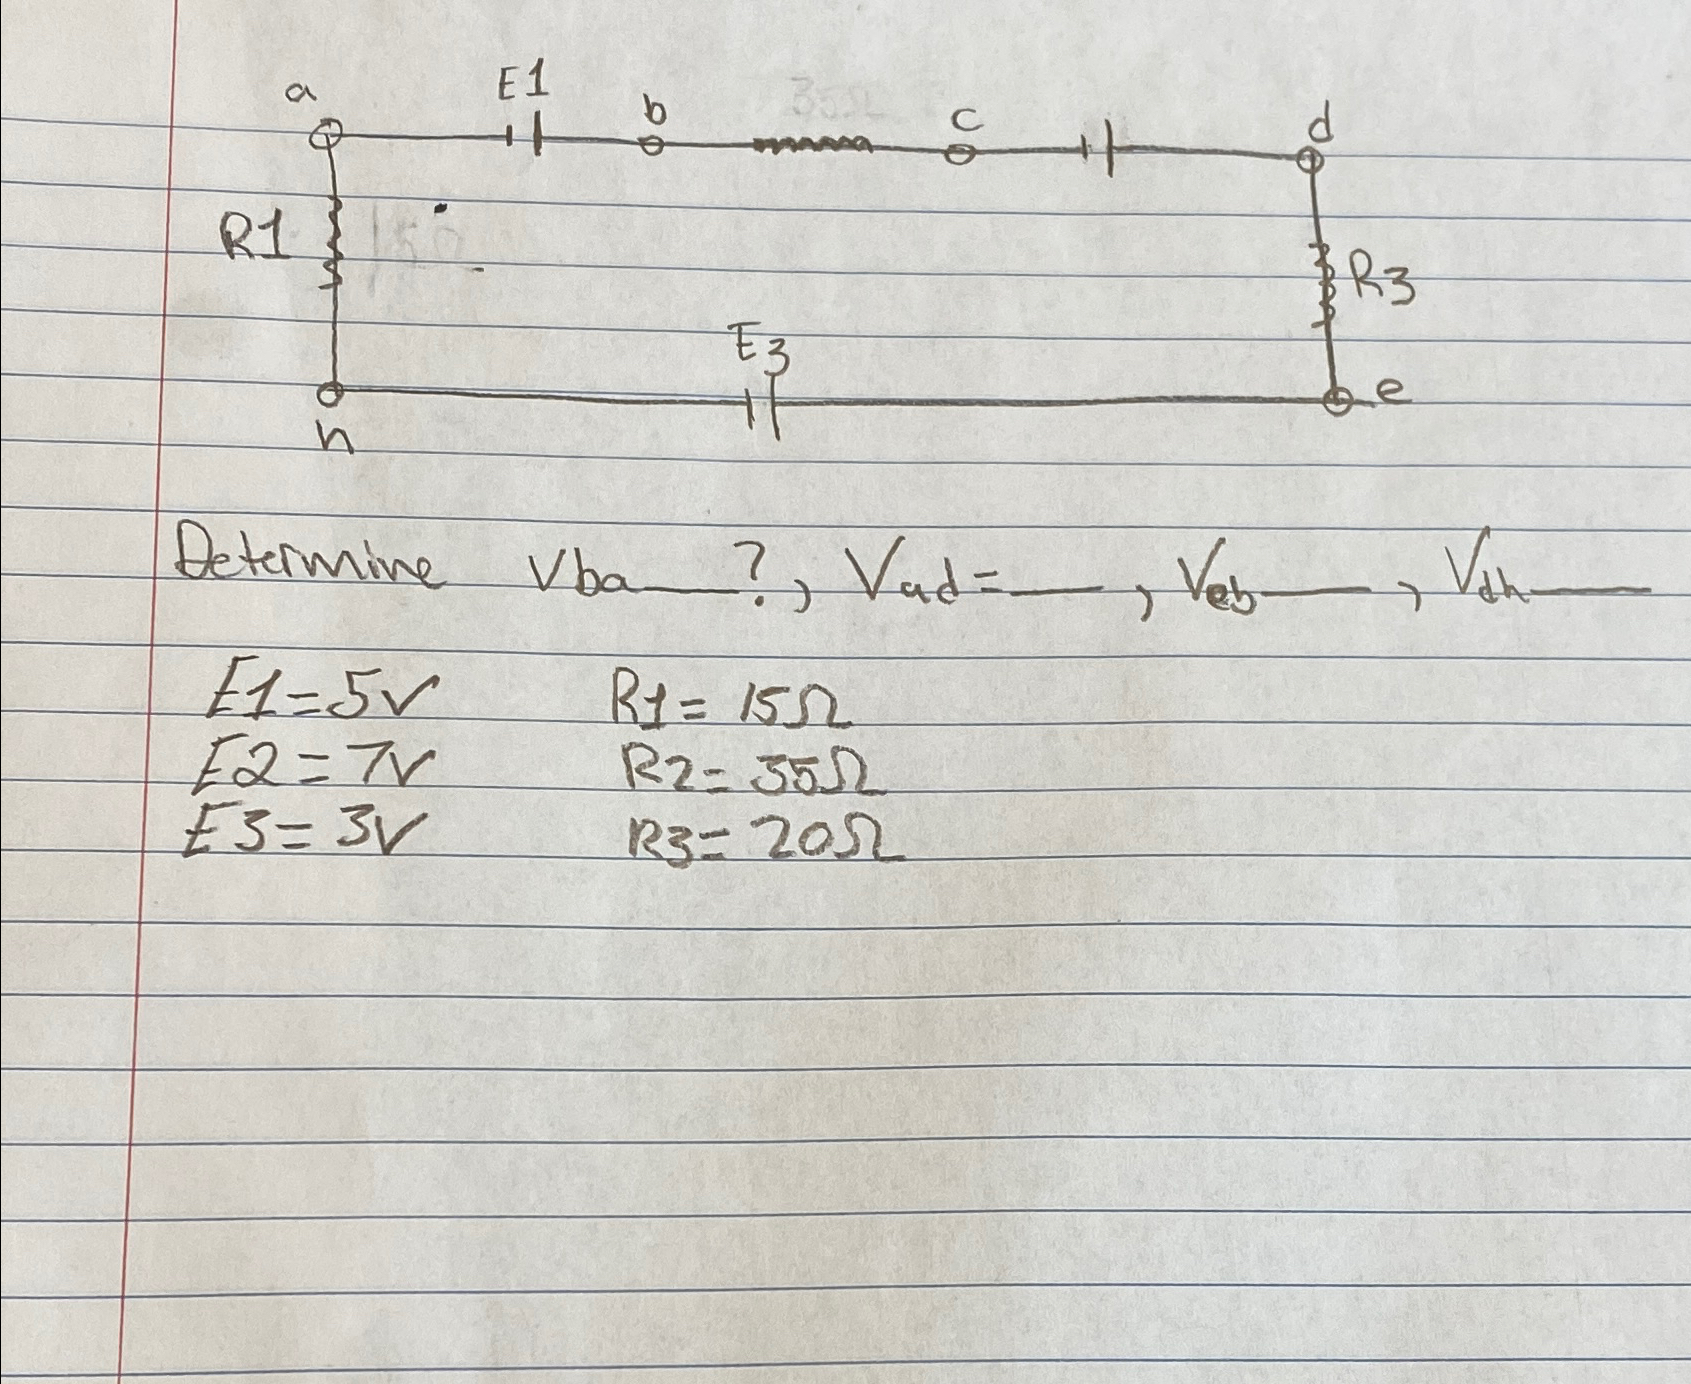 a E1 b 35Ω c d
R1 15Ω R3
E3
h e
Determine Vba___?, Vad=___, Veb___, Vdh___
E1=5V R1= 15Ω
E2=7V R2= 35Ω
E3= 3V R3= 20Ω